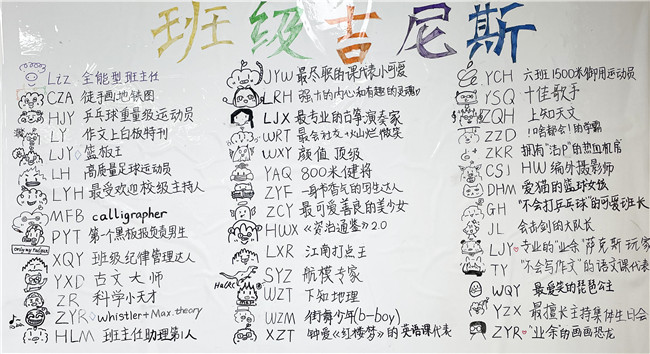 班级吉尼斯
Ltz 全能型班主任
CZA 徒手画地铁图
HJY 乒乓球重量级运动员
LY 作文上白板特刊
LJY 篮板王
LH 高质量足球运动员
LYH 最受欢迎校级主持人
MFB calligrapher
PYT 第一个黑板报负责男生
XQY 班级纪律管理达人
YXD 古文大师
ZR 科学小天才
ZYR whistler+Max. theory
HLM 班主任助理第1人
JYW 最尽职的课代表小可爱
LRH 强大的内心和有趣的灵魂
LJX 最专业的古筝演奏家
WRT 最会社交+灿烂微笑
WXY 颜值顶级
YAQ 800米健将
ZYF 一身书香气的男生达人
ZCY 最可爱善良的美少女
HWX 《资治通鉴》2.0
LXR 江南打点王
SYZ 航模专家
WZT 下知地理
WZM 街舞少年(b-boy)
XZT 钟爱《红楼梦》的英语课代表
YCH 六班1500米御用运动员
YSQ 十佳歌手
ZQH 上知天文
ZZD "啥都会"的学霸
ZKR 拥有"洁P"的热血机房
CSJ HW编外摄影师
DHM 爱猫的篮球女孩
GH "不会打乒乓球"的可爱班长
JL 会击剑的大队长
LJY 专业的"业余"萨克斯玩家
TY "不会写作文"的语文课代表
WQY 最爱笑的琵琶公主
YZX 最擅长主持集体生日会
ZYR "业余"的画画恐龙